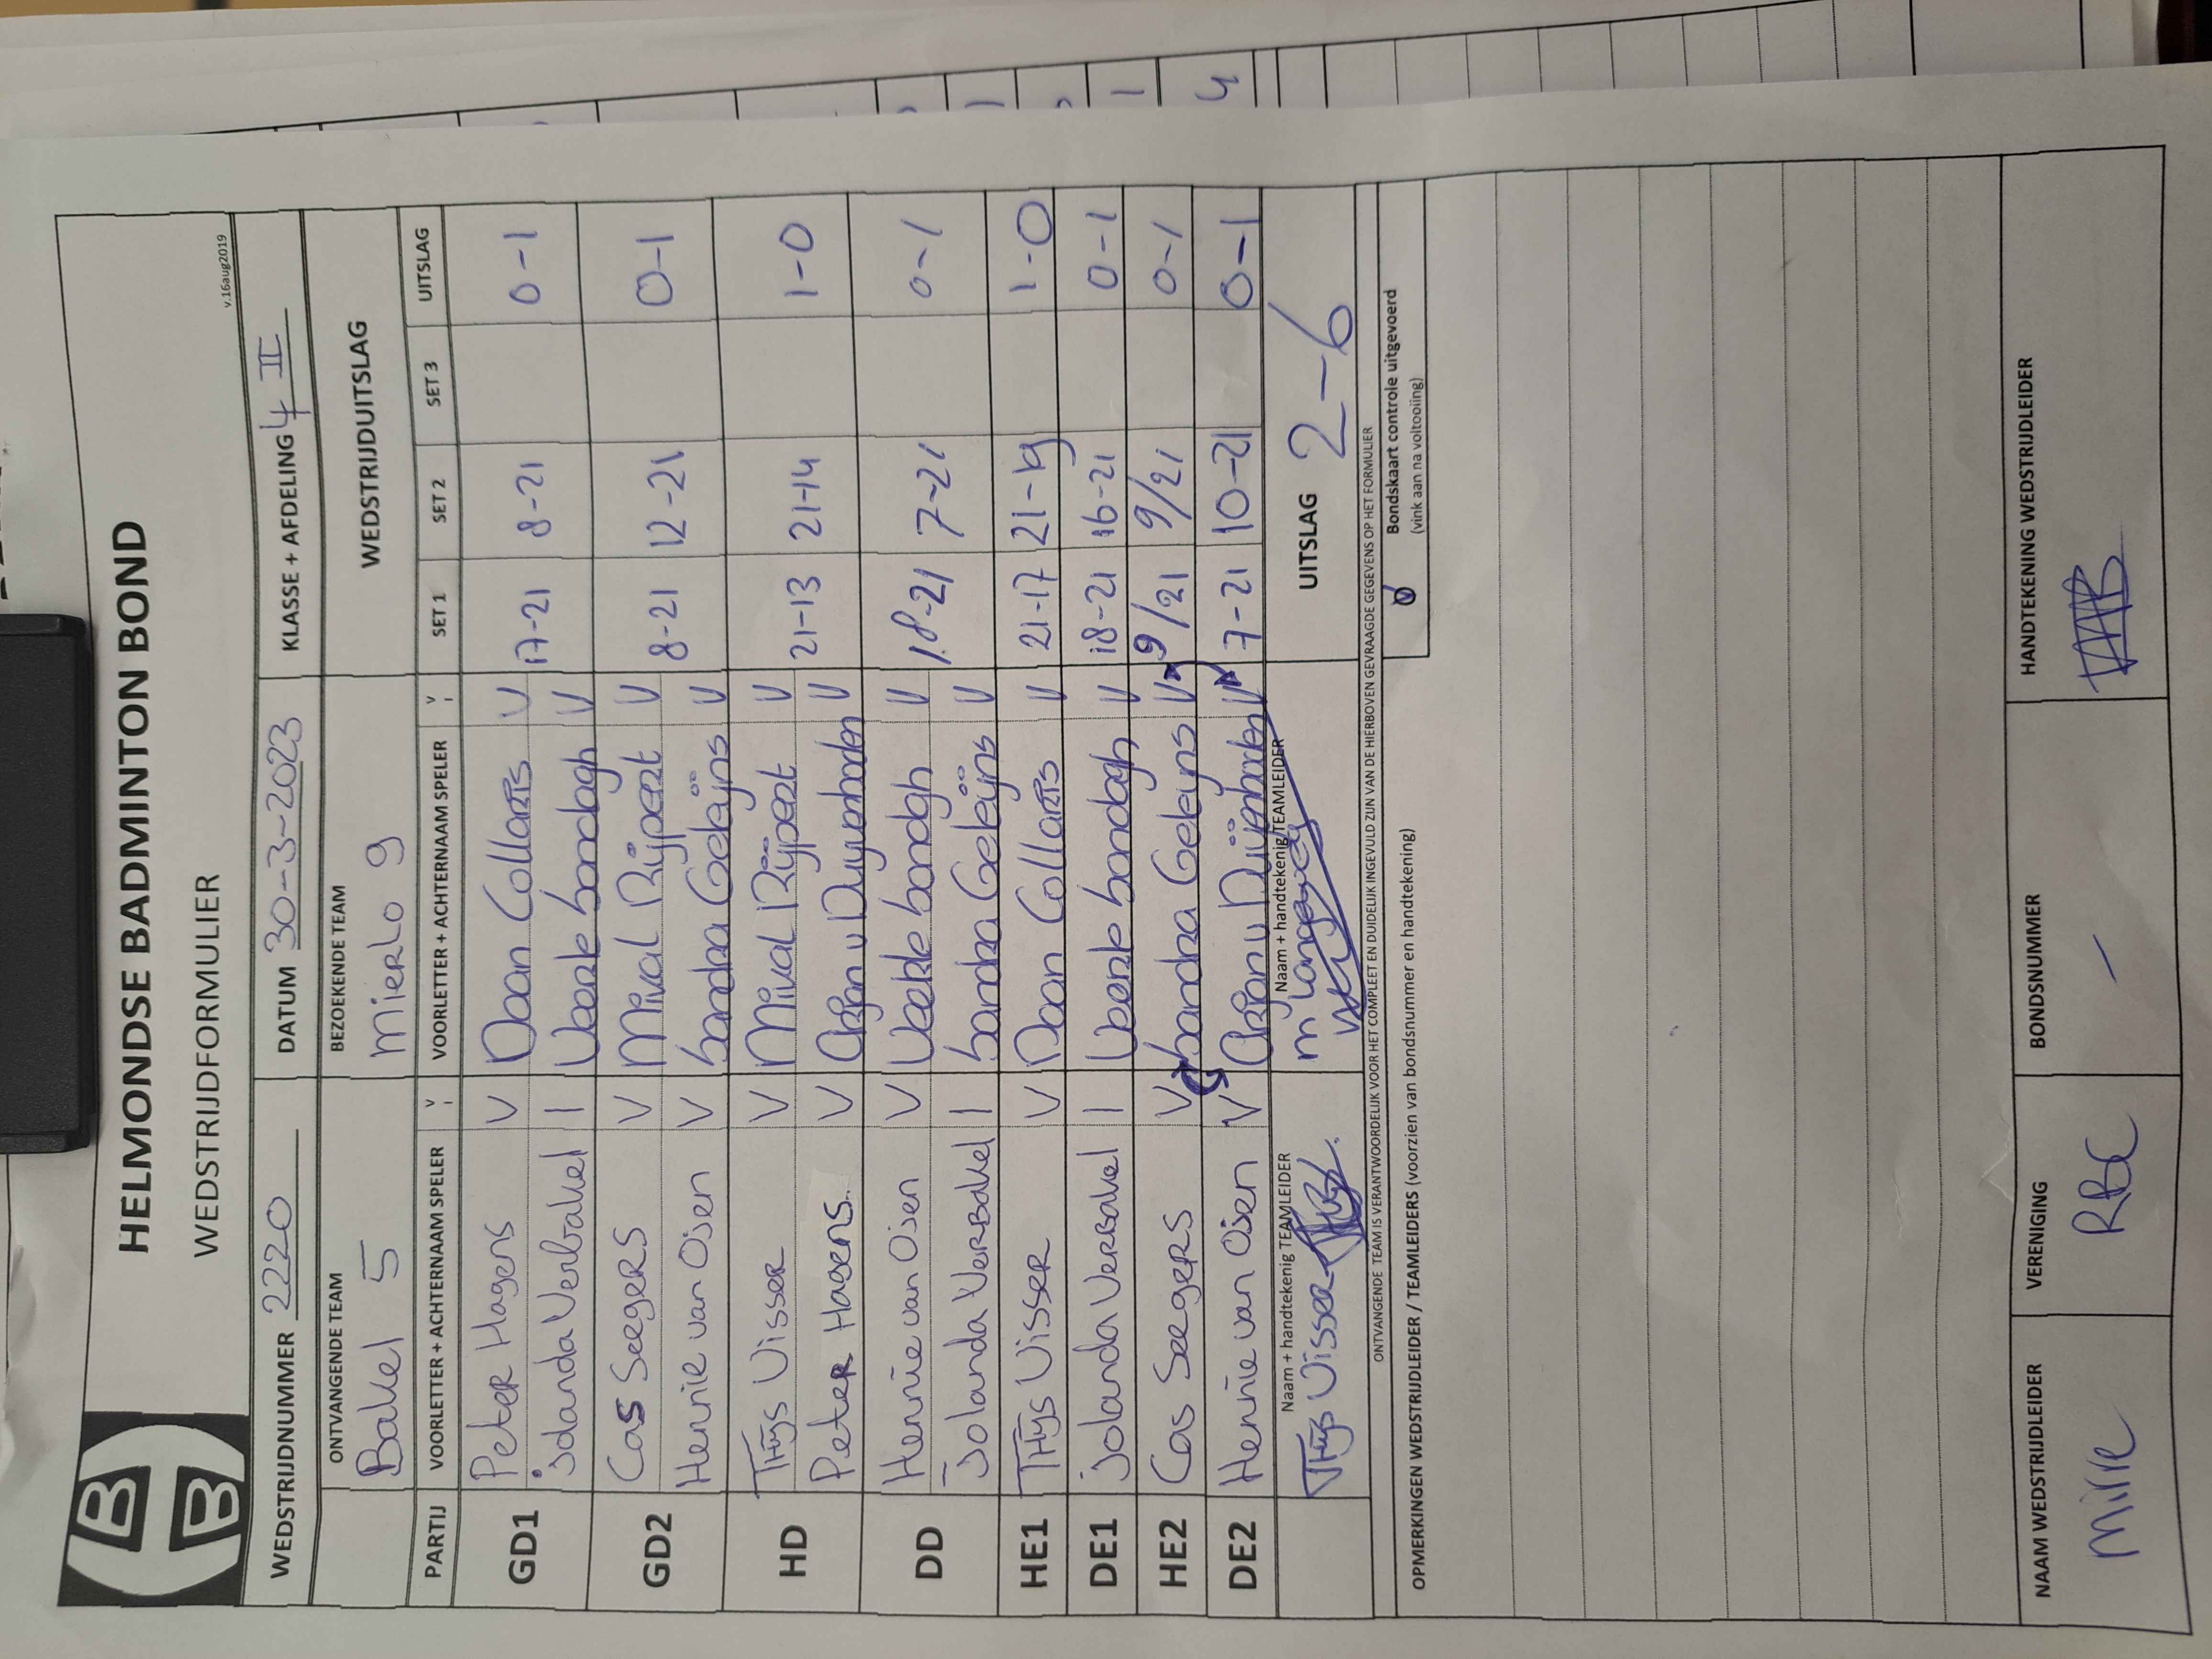 HELMONDSE BADMINTON BOND
WEDSTRIJDFORMULIER
v.16aug2019
WEDSTRIJDNUMMER 2220 DATUM 30-3-2023 KLASSE + AFDELING 4 II
ONTVANGENDE TEAM BEZOEKENDE TEAM WEDSTRIJDUITSLAG
Bakel 5 Mierlo 9
PARTIJ VOORLETTER + ACHTERNAAM SPELER V VOORLETTER + ACHTERNAAM SPELER V SET 1 SET 2 SET 3 UITSLAG
GD1 Peter Hagens V Daan Collaris V 17-21 8-21 0-1
Jolanda Verbakel I bondagh V
GD2 Cas Seegers V Mival Rijpert V 8-21 12-21 0-1
Hennie van Osen V Sandra Geleijns V
HD Thijs Visser V Mival Rijpert V 21-13 21-14 1-0
Peter Hagens. V Arjan v Duijnhoven V
DD Hennie van Osen V bondagh V 18-21 7-21 0-1
Jolanda Verbakel I Sandra Geleijns V
HE1 Thijs Visser V Daan Collaris V 21-17 21-19 1-0
DE1 Jolanda Verbakel I bondagh V 18-21 16-21 0-1
HE2 Cas Seegers V Sandra Geleijns V 9/21 9/21 0-1
DE2 Hennie van Osen V Arjan v Duijnhoven V 7-21 10-21 0-1
Naam + handtekenig TEAMLEIDER Naam + handtekenig TEAMLEIDER
Thijs Visser UITSLAG 2-6
ONTVANGENDE TEAM IS VERANTWOORDELIJK VOOR HET COMPLEET EN DUIDELIJK INGEVULD ZIJN VAN DE HIERBOVEN GEVRAAGDE GEGEVENS OP HET FORMULIER
Bondskaart controle uitgevoerd
(vink aan na voltooiing)
OPMERKINGEN WEDSTRIJDLEIDER / TEAMLEIDERS (voorzien van bondsnummer en handtekening)
NAAM WEDSTRIJDLEIDER VERENIGING BONDSNUMMER HANDTEKENING WEDSTRIJDLEIDER
RBC -